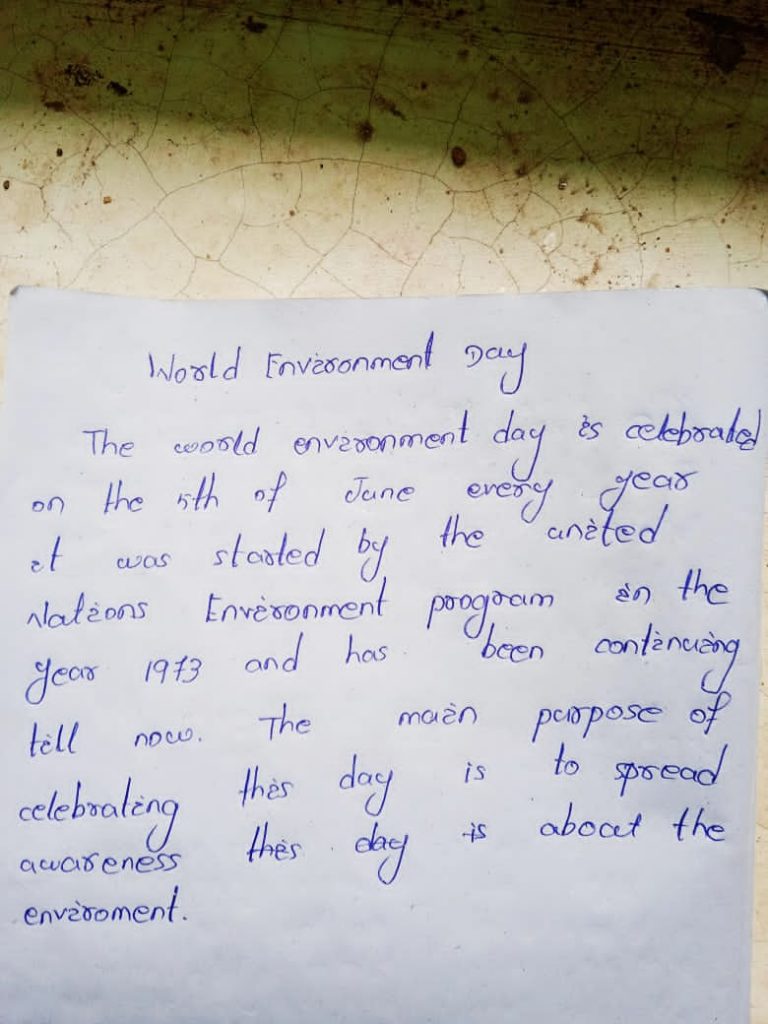 World Environment Day
The world environment day is celebrated
on the 5th of June every year
it was started by the united
Nations Environment program in the
year 1973 and has been continuing
till now. The main purpose of
celebrating this day is to spread
awareness this day is about the
enviroment.